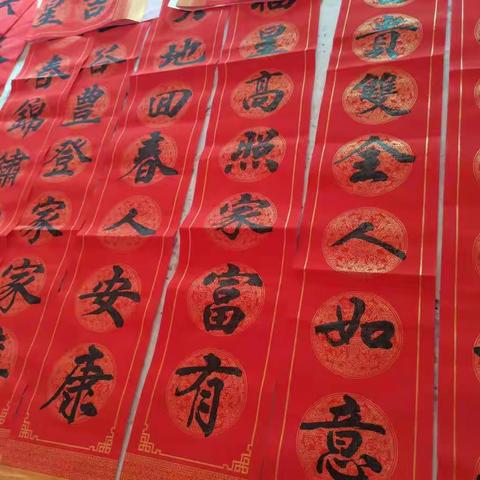 貴雙全人如意
福星高照家富有
地回春人安康
谷豐登家家
春錦繡
吉
星